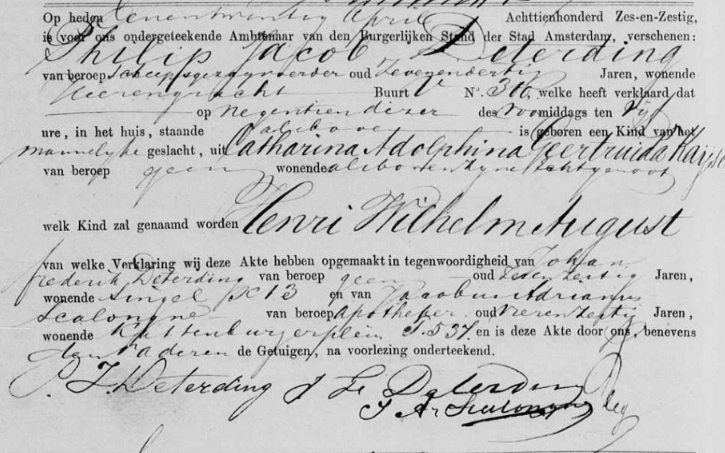 Op heden Eenentwintig April Achttienhonderd Zes-en-Zestig,
is voor ons ondergeteekende Ambtenaar van den Burgerlijken Stand der Stad Amsterdam, verschenen:
Philip Jacob Deterding
van beroep Scheepsgezagvoerder oud Zevenendertig Jaren, wonende
Heerengracht Buurt V N°. welke heeft verklaard dat
op Negentien dezer des Voormiddags ten Vijf
ure, in het huis, staande alsboven is geboren een Kind van het
mannelyke geslacht, uit Catharina Adolphina Geertruida Kayser
van beroep geen wonende alsboven zyne Echtgenoot
welk Kind zal genaamd worden Henri Wilhelm August
van welke Verklaring wij deze Akte hebben opgemaakt in tegenwoordigheid van Johan
frederik Deterding van beroep geen oud Jaren,
wonende Singel 13 en van Jacobus Adrianus
Scalongne van beroep Apotheker oud Jaren,
wonende Kattenburgerplein 537 en is deze Akte door ons, benevens
den vader en de Getuigen, na voorlezing onderteekend.
P. J. Deterding J F Deterding
J A Scalongne